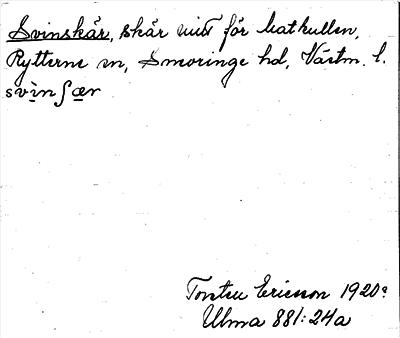 Svinskär, skär mitt för Matkullen,
Rytterne sn, Snevringe hd, Västm. l.
svìnʃæ̠r
Torsten Ericson 1920?
Ulma 881:24a